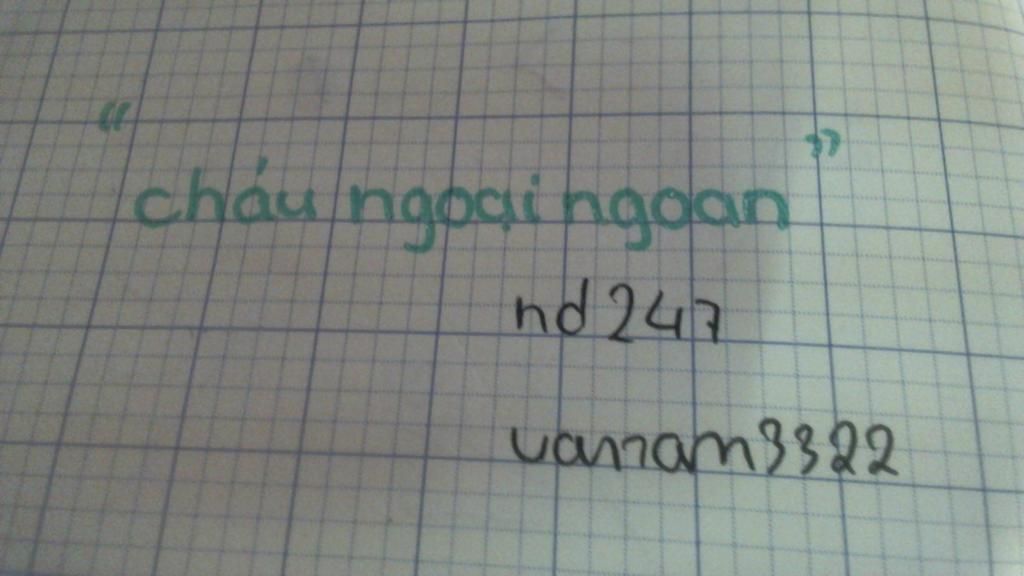 "cháu ngoại ngoan"
nd247
vannam3322